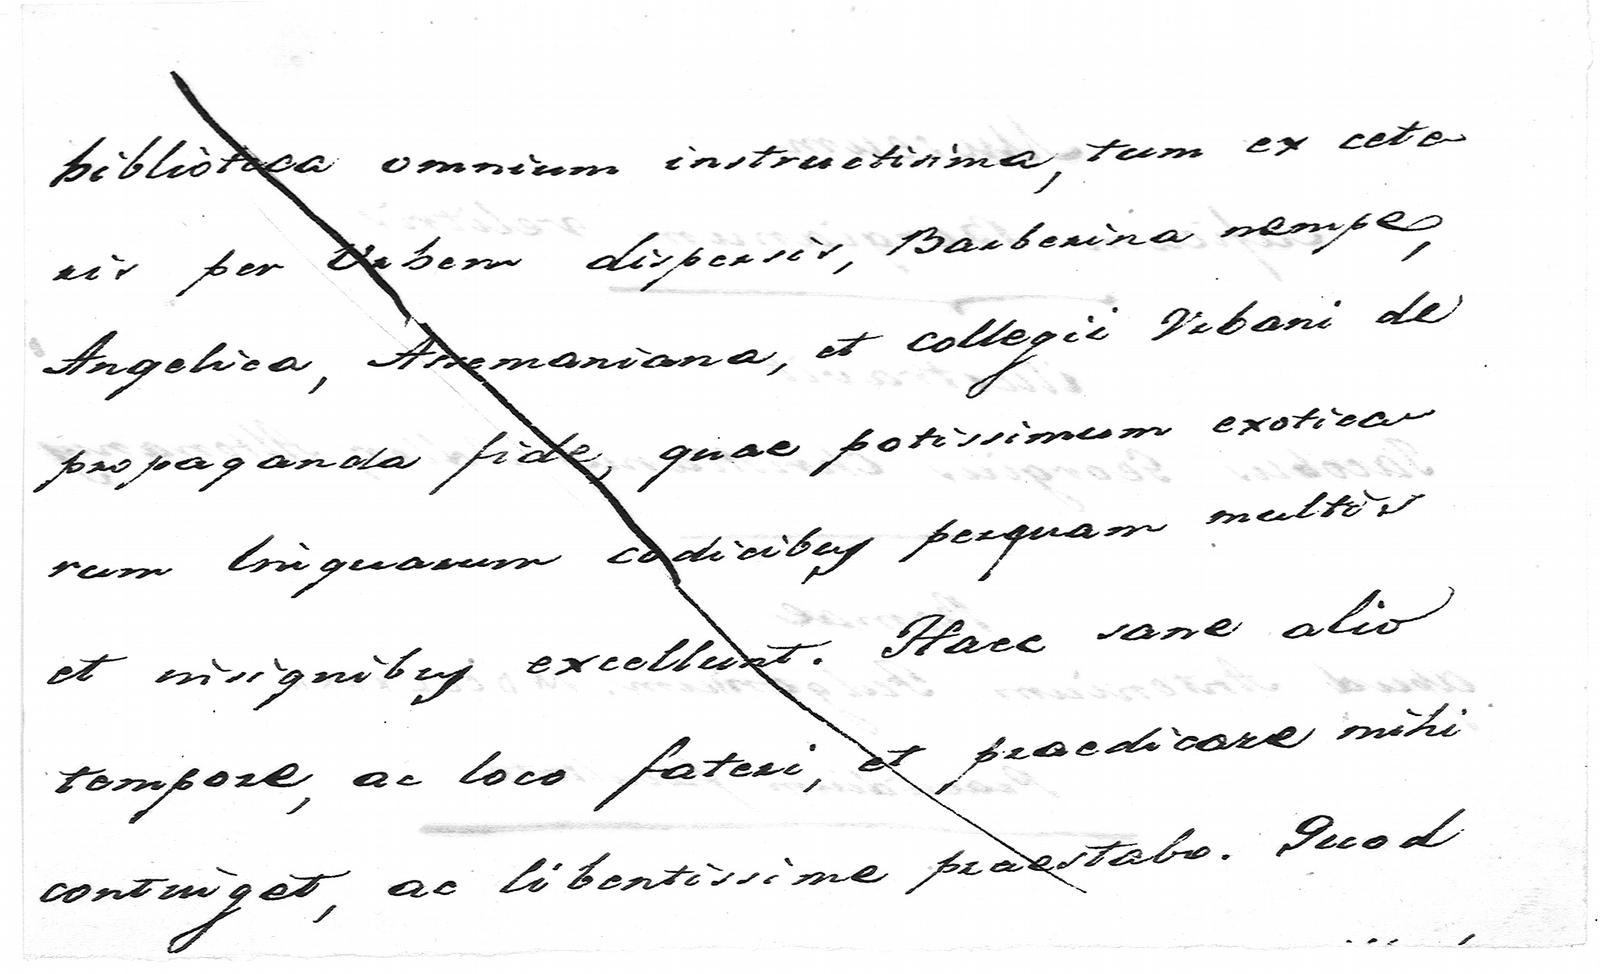 biblioteca omnium instructisima, tum ex cete
ris per Urbem dispersis, Barberina nempe,
Angelica, Assemaniana, et collegii Urbani de
propaganda fide, quae potissimum exotica
rum linguarum codicibus perquam multis
et insignibus excellunt. Haec sane alio
tempore, ac loco fateri, et praedicare mihi
continget, ac libentissime praestabo. Quod